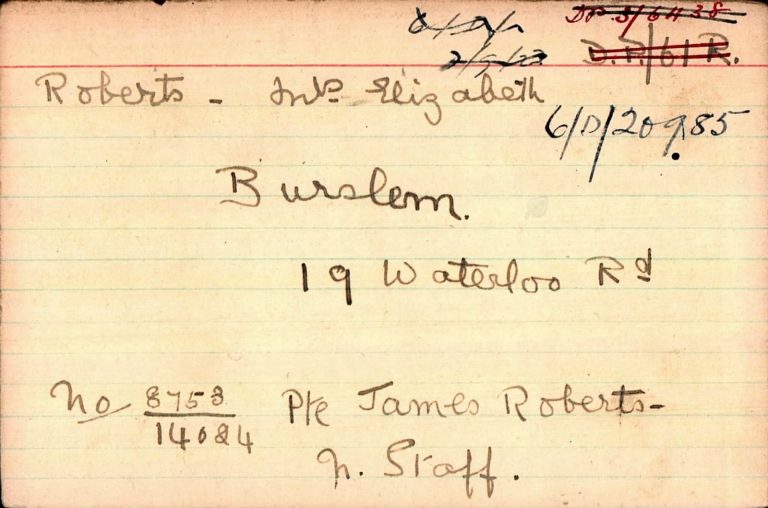 DP 3/6438
D.P./61 R.
Roberts - Mrs Elizabeth
6/D/20985
Burslem.
19 Waterloo Rd
No 8753
14084 Pte James Roberts-
N. Staff.